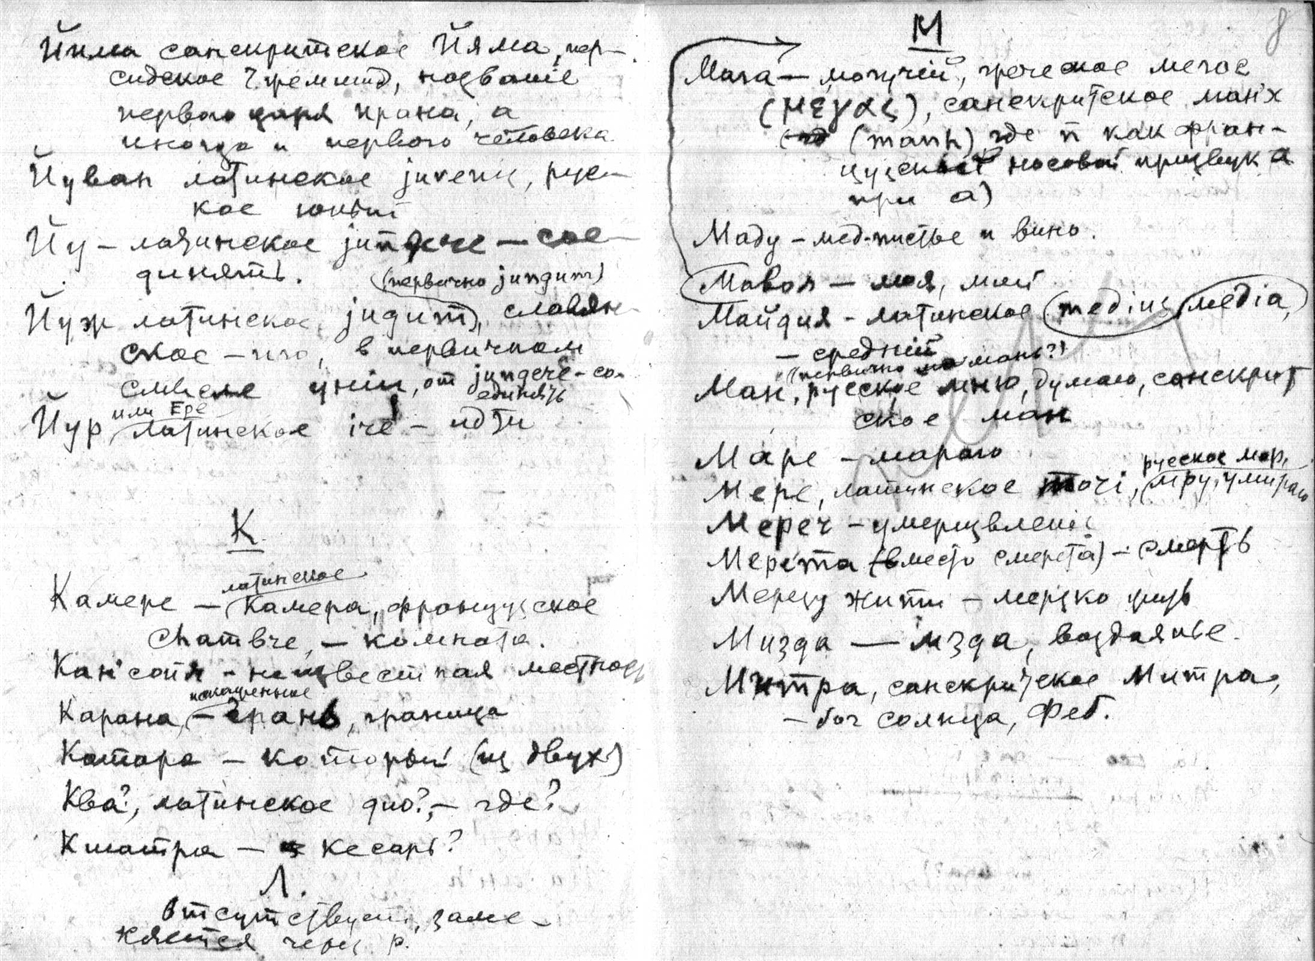 Йима санскритское Йяма, пер-
сидское Чжемшид, название
первого царя Ирана, а
иногда и первого человека
Йуван латинское juvenis, рус-
кое юный
Йу – латинское jungere – сое-
динять.
(первично jungum)
Йуж латинское jugum, славян-
ское – иго, в первичном
смысле унии, от jungere – со-
единять
или Ере
Йур, латинское ire – идти
К
латинское
Камере – Камера, французское
chambre, – комната.
Кансоия – неизвестная местность
искаженное
Карана, – грань, граница
Катара – который (из двух)
Ква?, латинское quo?, – где?
Кшатра – кесарь?
Л.
Отсутствует, заме-
няется через р.
М
8
Мага – могучий, греческое мегас
(μεγας), санскритское манх
(manh) где n как фран-
цузский носовой призвук
при а)
Маду – мед-питье и вино.
Мавоя – моя, мой
Майдия – латинское medius, media,
– средний
Ман, русское мню, думаю, санскрит
ское ман
Маре – мараю
русское мор,
Мере, латинское mori, мру, умираю
Береч – умерщвление
Мерета (вместо смерета) – смерть
Мерезу жити – мерзко жить
Мизда – мзда, воздаянье.
Митра, санскритское Митра,
– бог солнца, Феб.